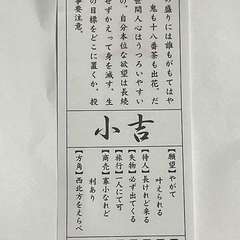 盛りには誰もがもてはや
鬼も十八番茶も出花。だ
世間人心はうつろいやすい
の、自分本位な欲望は長続
せずかえって身を滅す。生
の目標をどこに置くか。投
事要注意。
小吉
【願望】やがて
叶えられる
【待人】長けれど来る
【失物】必ず出てくる
【旅行】一人にて可
【商売】寡小なれど
利あり
【方角】西北方をえらべ